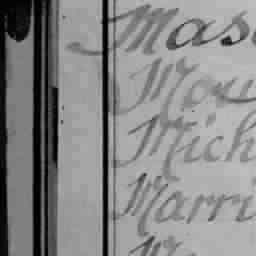 Mas
Mou
Mich
Marri
M